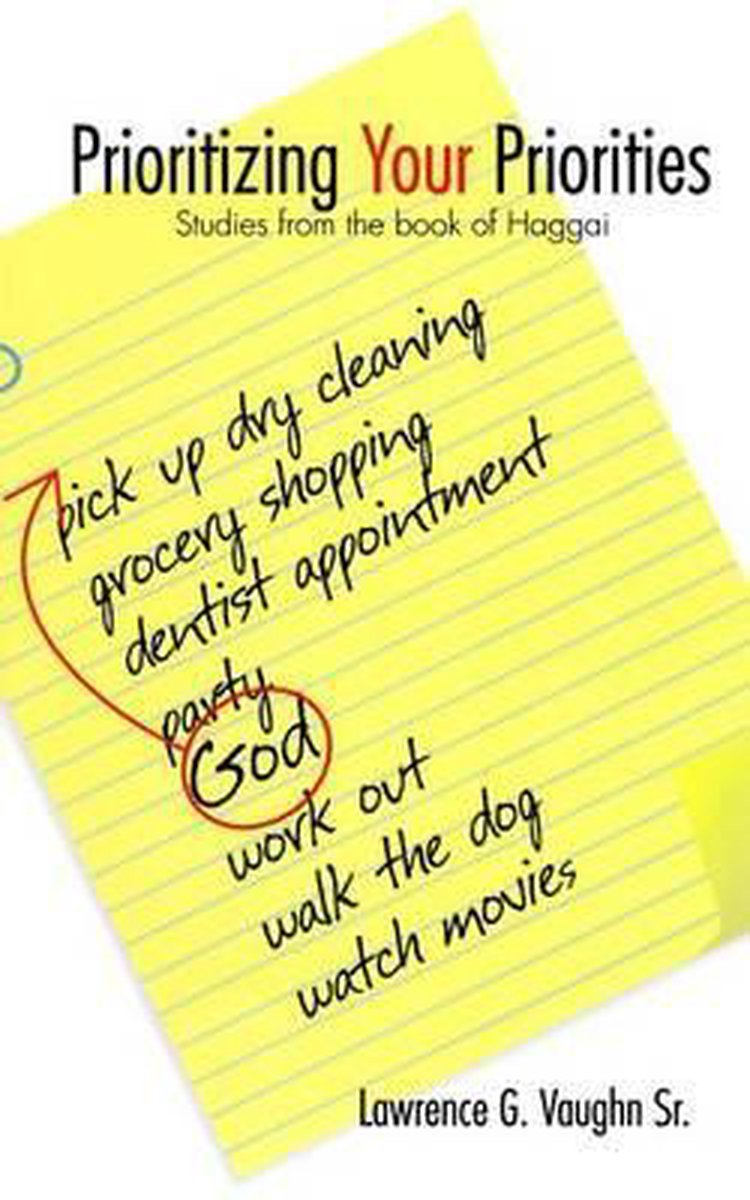 Prioritizing Your Priorities
Studies from the book of Haggai
pick up dry cleaning
grocery shopping
dentist appointment
party
God
work out
walk the dog
watch movies
Lawrence G. Vaughn Sr.